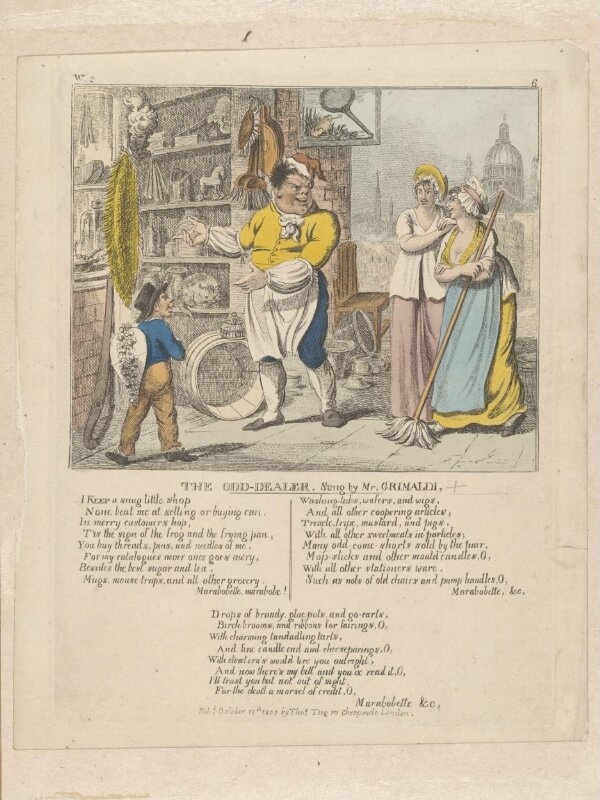 W. 3
6
THE ODD-DEALER. Sung by Mr. GRIMALDI,
I KEEP a snug little shop
None beat me at selling or buying can.
In merry customers hop,
Tis the sign of the frog and the frying pan;
You buy threads, pins, and needles of me.
For my catalogues never once goes awry,
Besides the best sugar and tea.
Mugs, mouse traps, and all other grocery.
Marabobette, marabobe!
Washing-tubs, wafers, and wigs,
And, all other coopering articles;
Treacle, tripe, mustard, and pigs.
With all other sweetmeats in particles;
Many odd come shorts sold by the pair,
Mop-sticks and other mould candles, O,
With all other stationers ware.
Such as nobs of old chairs and pump handles, O,
Marabobette, &c,
Drops of brandy, glue pots, and go-carts,
Birch brooms, and ribbons for fairings, O,
With charming tandadling tarts,
And fine candle end and cheese parings, O;
With etcetera's would tire you outright,
And now there's my bill and you've read it, O,
I'll trust you but not out of sight.
For the devil a morsel of credit, O,
Marabobette &c,
Pub.d October 12th 1807 by Thos. Tegg 111 Cheapside London.